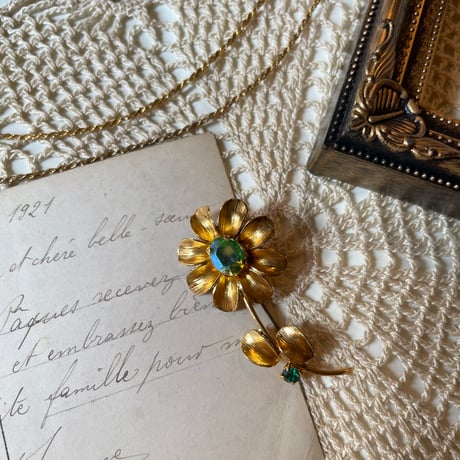 1921
et chéré belle-
Pâques recevez
et embrassez bien
famille pour